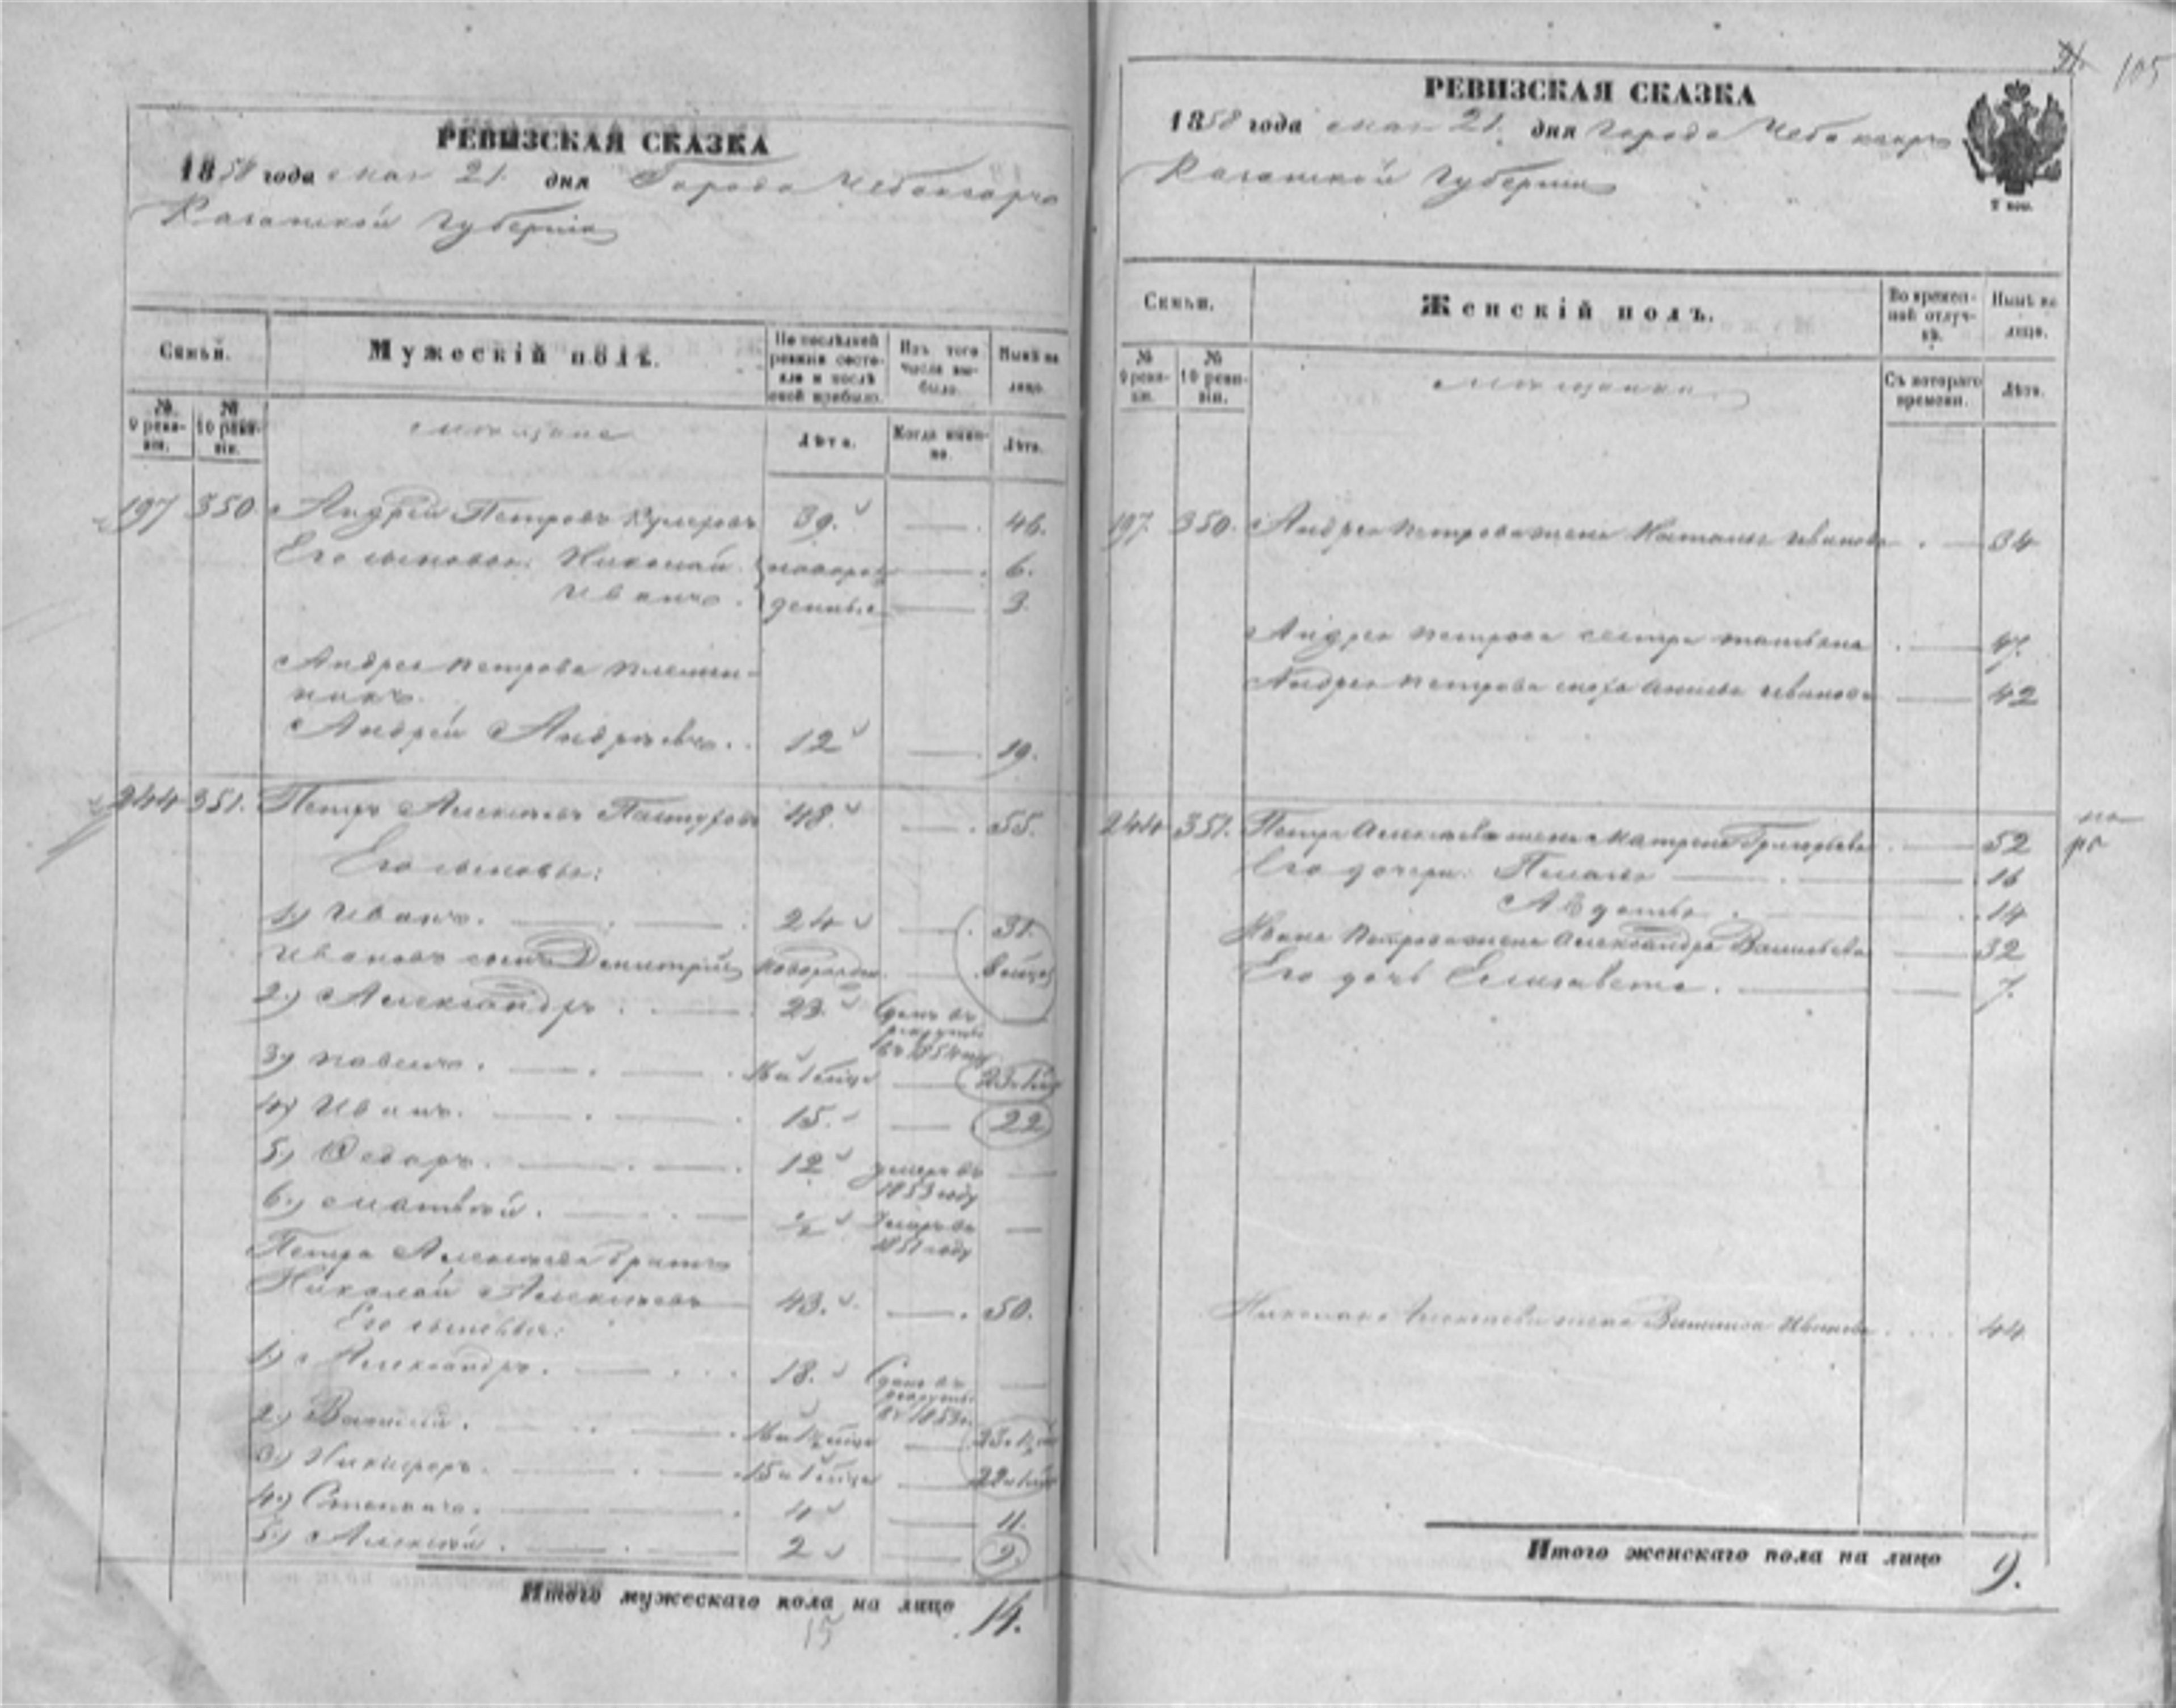 РЕВИЗСКАЯ СКАЗКА
1858 года мая 21 дня Города Чебоксаръ
Казанской губернiи
Семьи.
Мужескiй полъ.
По послѣдней ревизiи состояло и послѣ оной прибыло.
Изъ того числа выбыло.
Нынѣ на лицо.
№ 9 ревизiи.
№ 10 ревизiи.
мещане
Лѣта.
Когда именно.
Лѣта.
197 350. Андрей Петровъ 39. 46.
Его сыновья: Николай новорож 6.
Иванъ. денные 3.
Андрея Петрова племян-
никъ.
Андрей Андреевъ 12 19.
244 351. Петръ Алексѣевъ 48. 55.
Его сыновья:
1) Иванъ. 24 31.
Ивановъ сынъ Димитрiй новорожден.
2.) Александръ 23. Сданъ въ
рекруты
въ 1854 году
3) Павелъ.
4) Иванъ. 15. 22
5) Федоръ. 12 умеръ въ
1853 году
6.) Матвѣй. Умеръ въ
1851 году
Петра Алексѣева братъ
Николай Алексѣевъ 43. 50.
Его сыновья:
1) Александръ. 18. Сданъ въ
рекруты
въ 1853 г.
2.) Василiй.
3.) Никифоръ.
4.) Степанъ. 4 11.
5.) Алексѣй. 2 9.
Итого мужескаго пола на лицо 14.
15
105
РЕВИЗСКАЯ СКАЗКА
1858 года мая 21. дня Города Чебоксаръ
Казанской губернiи
Семьи.
Женскiй полъ.
Во временной отлучкѣ.
Нынѣ на лицо.
№ 9 ревизiи.
№ 10 ревизiи.
мещанки
Съ котораго времени.
Лѣта.
197. 350. Андрея Петрова жена Наталья Иванова 34
Андрея Петрова сестра Татьяна 47.
Андрея Петрова сноха Иванова 42
244 351. Петра Алексѣева жена Матрена Григорьева 52
Его дочери: Пелагея 16
Авдотья 14
Ивана Петрова жена Александра Васильева 32
Его дочь Елизавета. 7.
Николая Алексѣева жена Иванова 44
Итого женскаго пола на лицо 9.